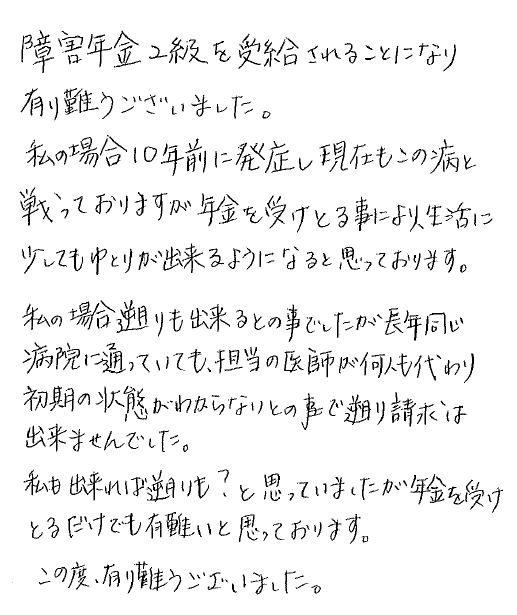 障害年金2級を受給されることになり
有り難うございました。
私の場合10年前に発症し現在もこの病と
戦っておりますが年金を受けとる事により生活に
少してもゆとりが出来るようになると思っております。
私の場合遡りも出来るとの事でしたが長年同じ
病院に通っていても、担当の医師が何人も代わり
初期の状態がわからないとの事で遡り請求は
出来ませんでした。
私も出来れば遡りも?と思っていましたが年金を受け
とるだけでも有難いと思っております。
この度、有り難うございました。